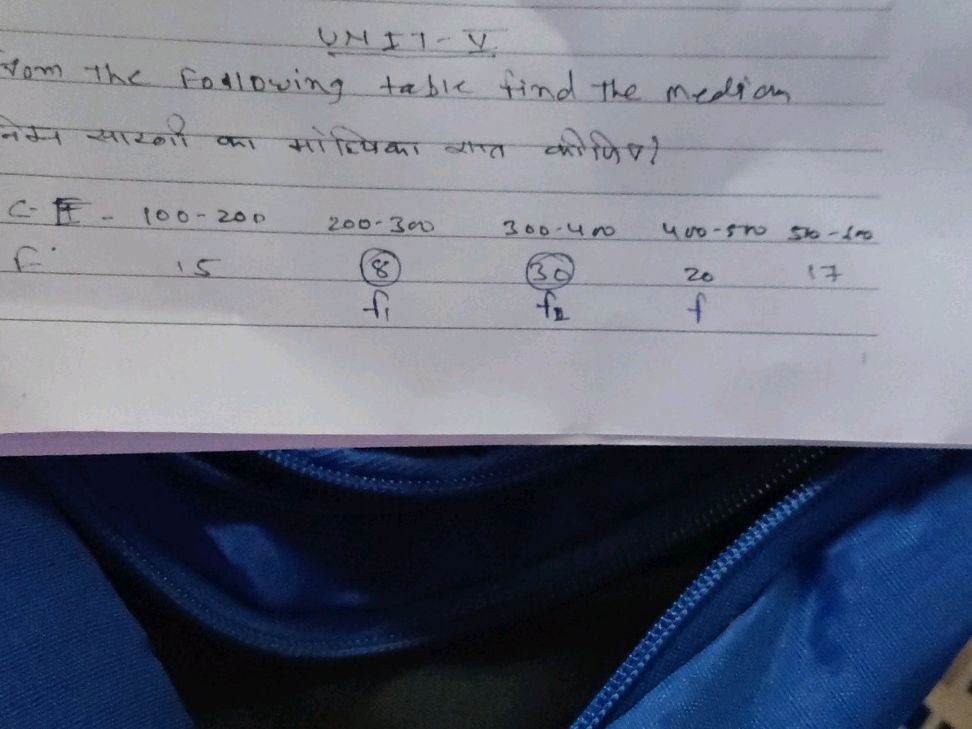 UNIT-V
rom the Following table find the median
निम्न सारणी का माध्यिका ज्ञात कीजिए?
C-I - 100-200 200-300 300-400 400-500 500-600
F 15 8 30 20 17
f1 f2 f